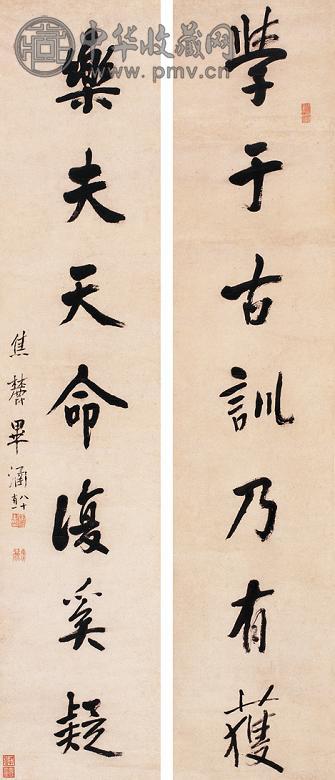 中华收藏网
www.pmv.cn
學于古訓乃有獲
樂夫天命復奚疑
焦麓畢涵